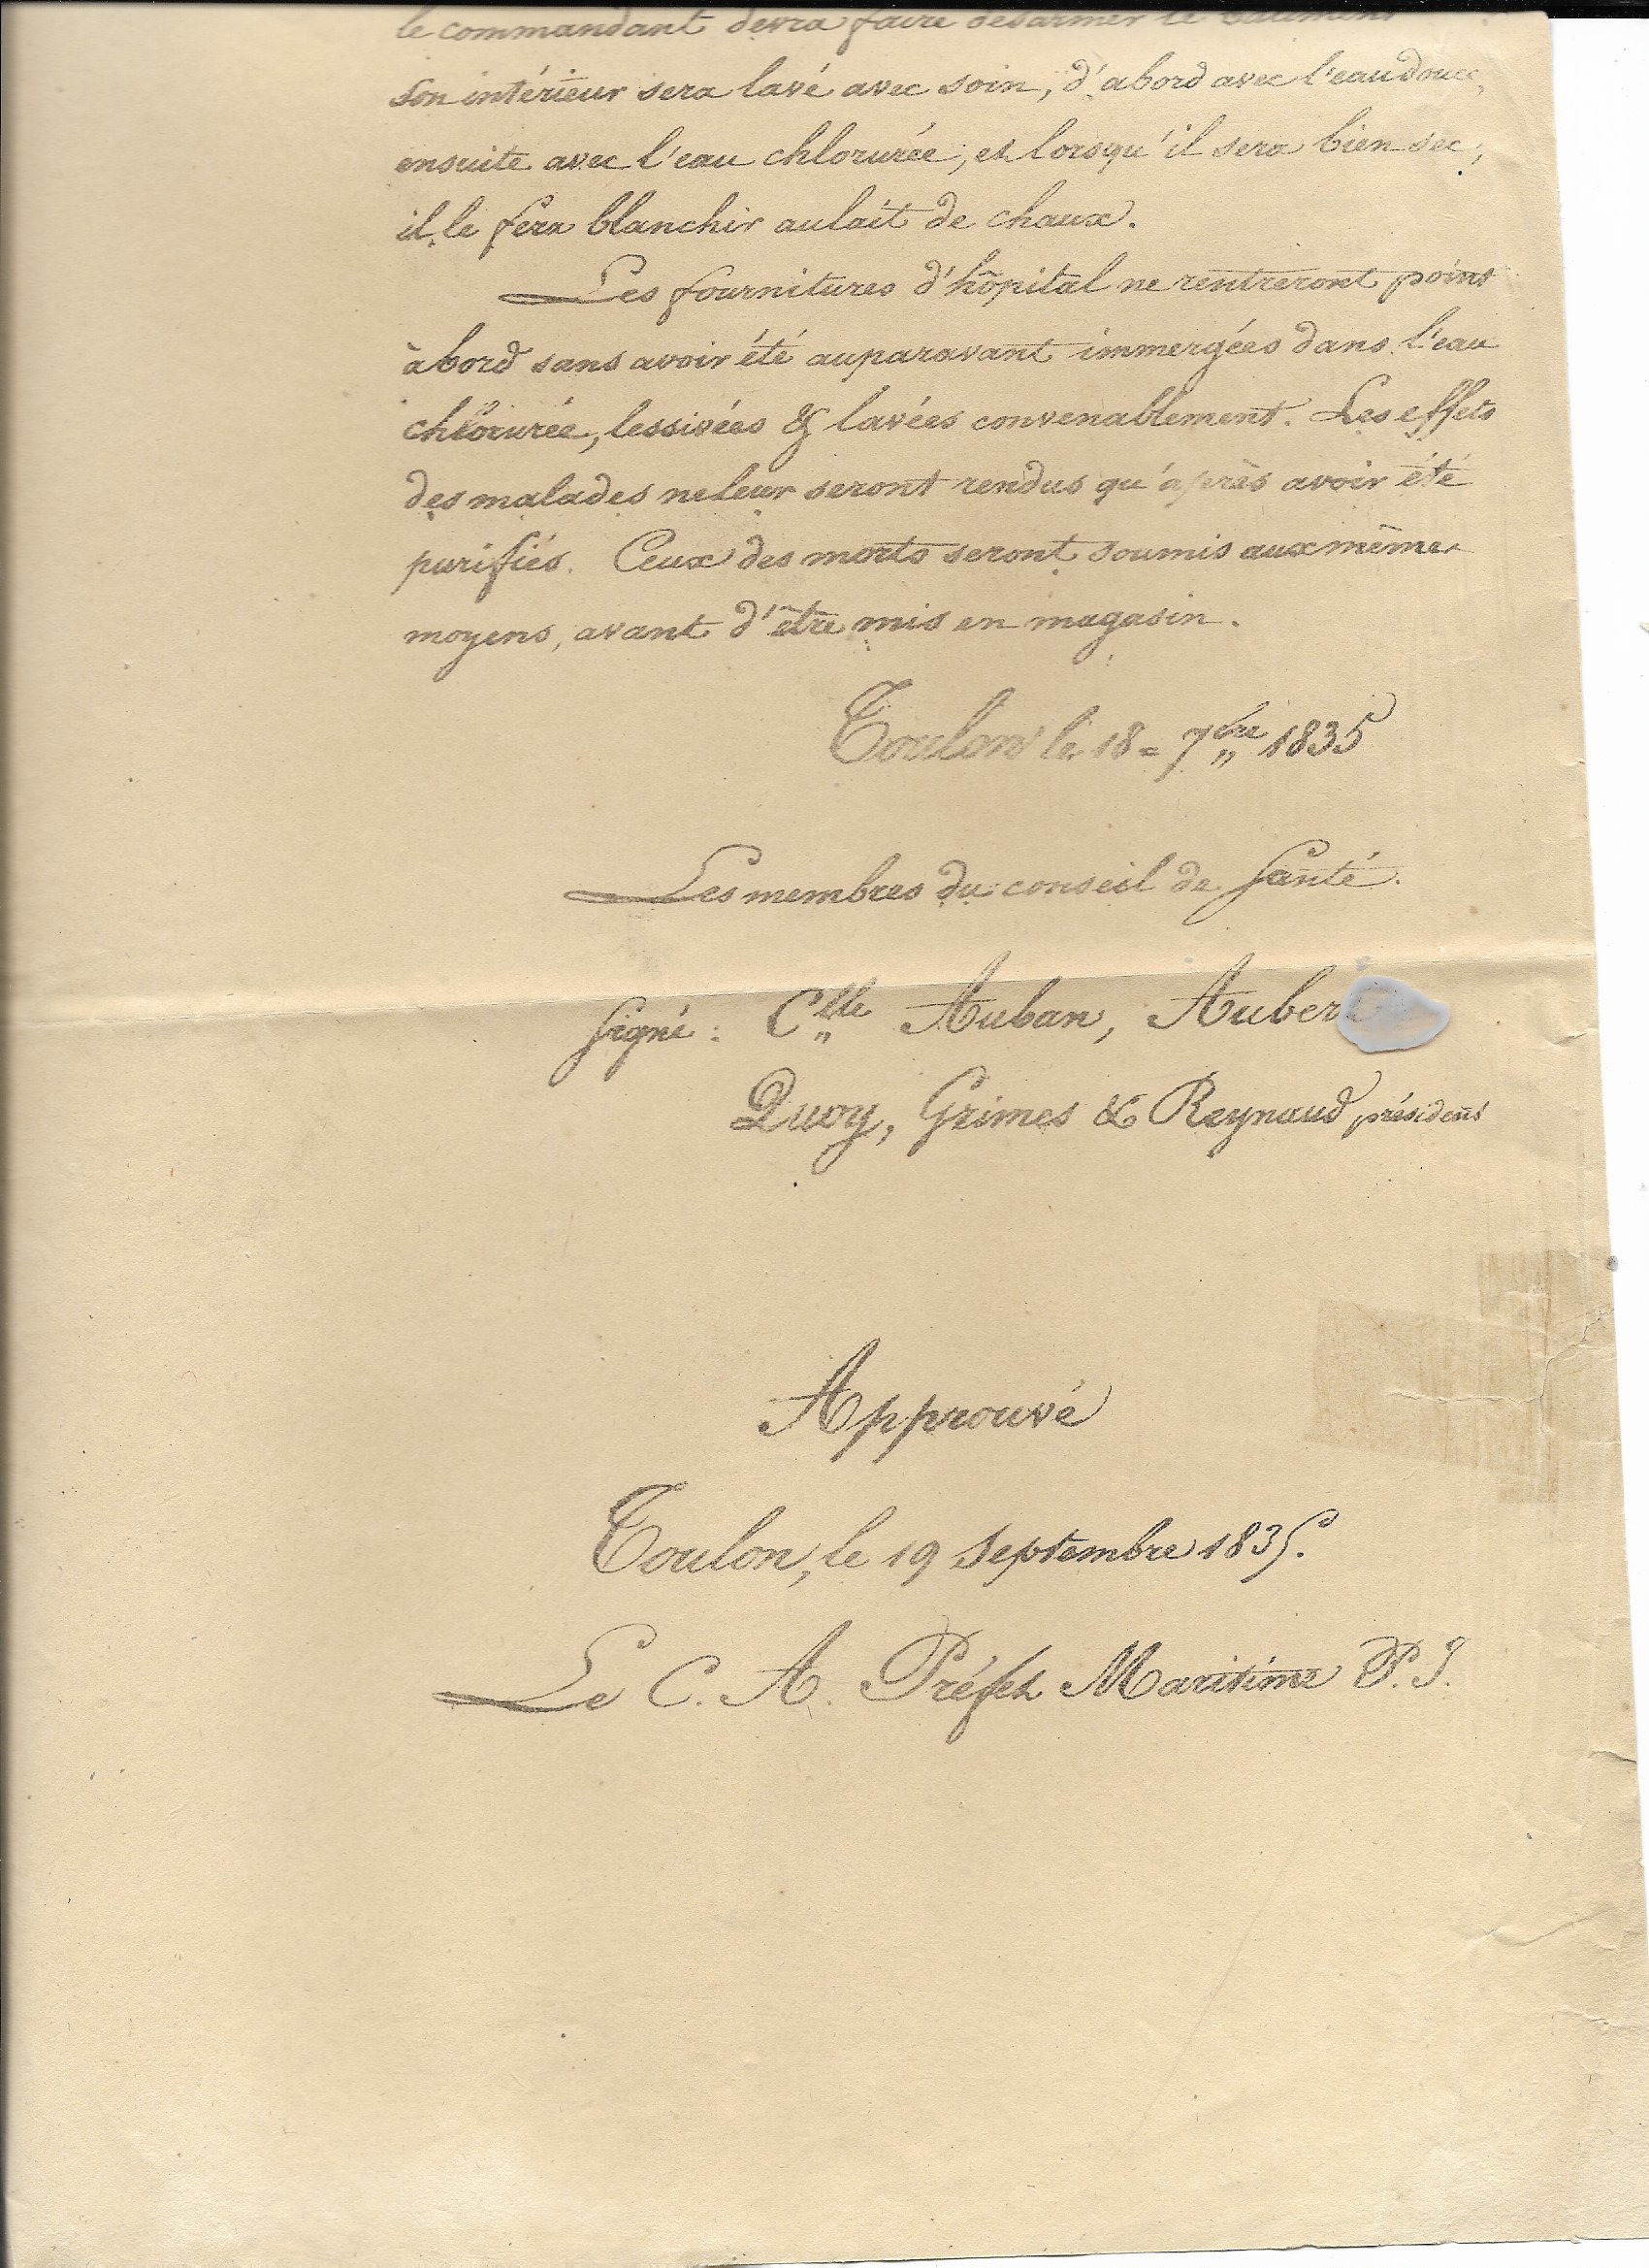 le commandant devra faire désarmer le bâtiment
son intérieur sera lavé avec soin, d'abord avec l'eau douce,
ensuite avec l'eau chlorurée, et lorsqu'il sera bien sec,
il le fera blanchir au lait de chaux.
Les fournitures d'hôpital ne rentreront point
à bord sans avoir été auparavant immergées dans l'eau
chlorurée, lessivées & lavées convenablement. Les effets
des malades ne leur seront rendus qu'après avoir été
purifiés. Ceux des morts seront soumis aux mêmes
moyens, avant d'être mis en magasin.
Toulon le 18 = 7bre 1835
Les membres du conseil de Santé.
Signé : Clle Auban, Auber
Quoy, Grimes & Reynaud président
Approuvé
Toulon, le 19 Septembre 1835.
Le C. A. Préfet Maritime P. I.